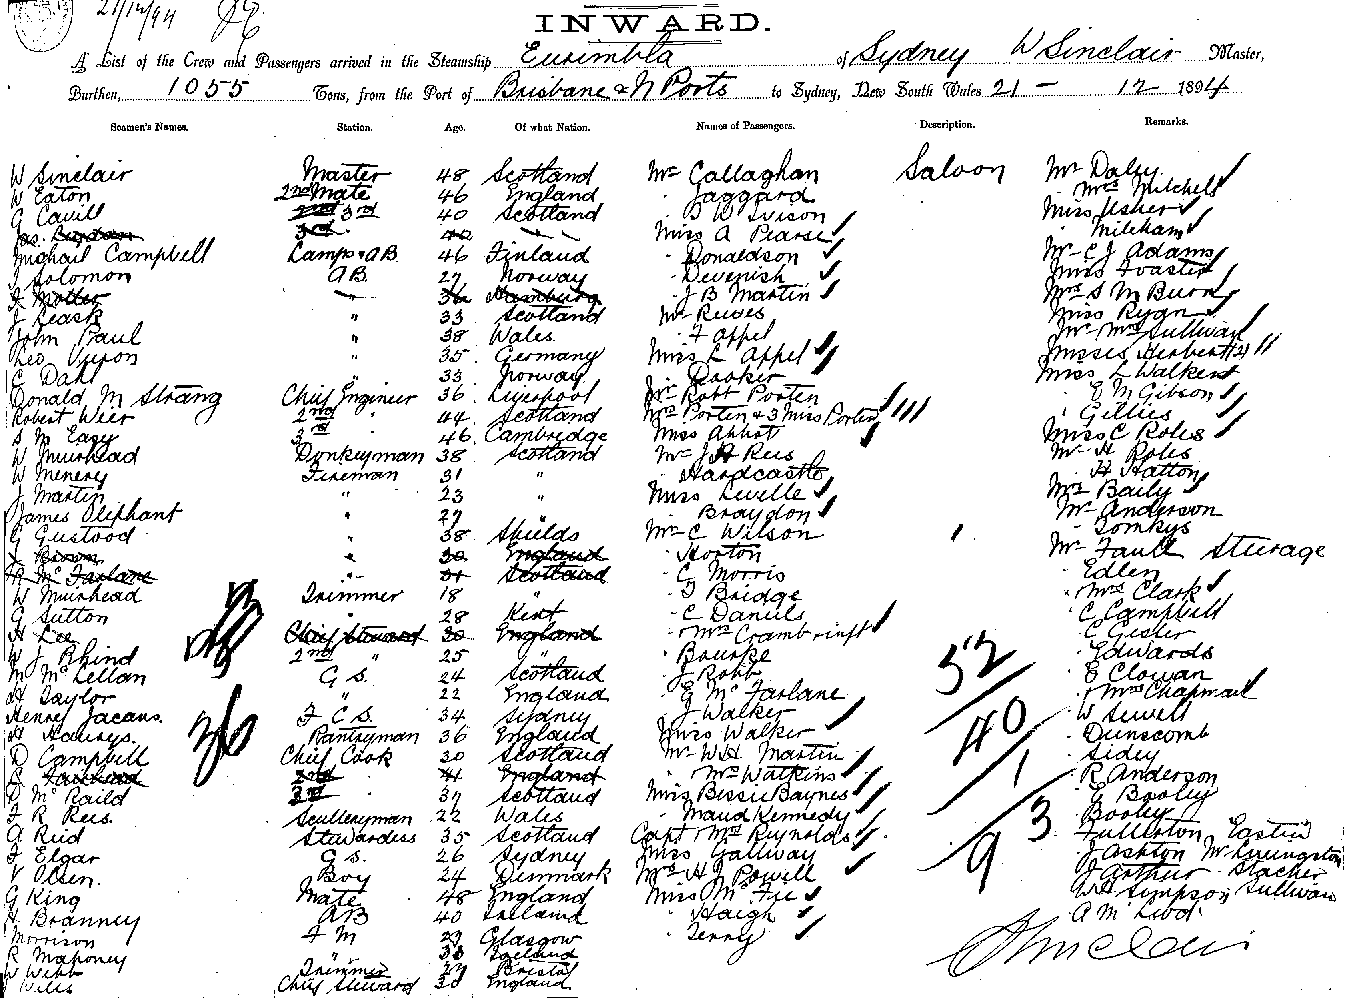 21/12/94
INWARD.
A List of the Crew and Passengers arrived in the Steamship Eurimbla of Sydney W Sinclair Master,
Burthen, 1055 Tons, from the Port of Brisbane & N Ports to Sydney, New South Wales 21 - 12 1894
Seamen's Names. Station. Age. Of what Nation. Names of Passengers. Description. Remarks.
W Sinclair Master 48 Scotland Mr Callaghan Saloon Mr Daly
W Eaton 2nd Mate 46 England Jaggard Mrs Mitchell
G Cavill 3rd 40 Scotland B W Ivison Miss Usher
3rd 42 Miss A Pearse Mileham
Michail Campbell Lamps & AB 46 Finland Donaldson Mr C J Adams
J Solomon AB 27 Norway Devenish Miss Foaster
J Motter 36 Hamburg J B Martin Mrs S M Burn
J Leask " 33 Scotland Mr Reeves Miss Ryan
John Paul " 38 Wales F Appel Mr Mrs Sullivan
Leo " 35 Germany Miss L Appel Misses Herbert (2)
C Dahl " 33 Norway Dooker Miss L Walker
Donald M Strang Chief Engineer 36 Liverpool Mr Robt Porten E M Gibson
Robert Weir 2nd " 44 Scotland Mrs Porten & 3 Miss Porten Gillies
S M Easy 3rd " 46 Cambridge Miss Abbot Miss C Roles
W Muirhead Donkeyman 38 Scotland Mr J A Reis Mr H Roles
W Menery Fireman 31 " Hardcastle H Hatton
J Martin " 23 " Miss Levelle Mrs Baily
James Oliphant " 29 Braydon Mr Anderson
G Gustood " 38 Shields Mr C Wilson Tomkys
J Brown " 30 England Horton Mr Faull Sturage
R McFarlane " 31 Scotland G Morris Edlen
W Muirhead Trimmer 18 " T Bridge Mrs Clark
G Sutton " 28 Kent C Daniels C Campbell
H Lee Chief Steward 30 England Mrs C Gister
W J Rhind 2nd " 25 " Bourke Edwards
M McLellan G S. 24 Scotland J Robb E Clowan
H Taylor " 22 England G McFarlane Mrs Chapman
Henry Jacans. F C S. 34 Sydney J Walker W Sewell
H Pantryman 36 England Miss Walker Dunscomb
D Campbell Chief Cook 30 Scotland Mr W H Martin Sidey
2nd 41 England Mrs Watkins R Anderson
D McRaild 3rd 37 Scotland Miss Bessie Baynes G Booley
F R Rees. Sculleryman 22 Wales Maud Kennedy Booley
A Reid Stewardess 35 Scotland Capt Mrs Reynolds Fullerton
F Elgar G S. 26 Sydney Miss Gallway J Ashton Mr Livingston
V Olsen. Boy 24 Denmark Mr H J Powell J Arthur Stacher
G King Mate 48 England Miss McFie W H Simpson Sullivan
H Branney AB 40 Ireland Haigh A McLeod
Morrison F M 29 Glasgow Terry
R Mahoney 33 Ireland
W Webb Trimmer 27 Bristol
Wills Chief Steward 30 England
36
52
40
1
93